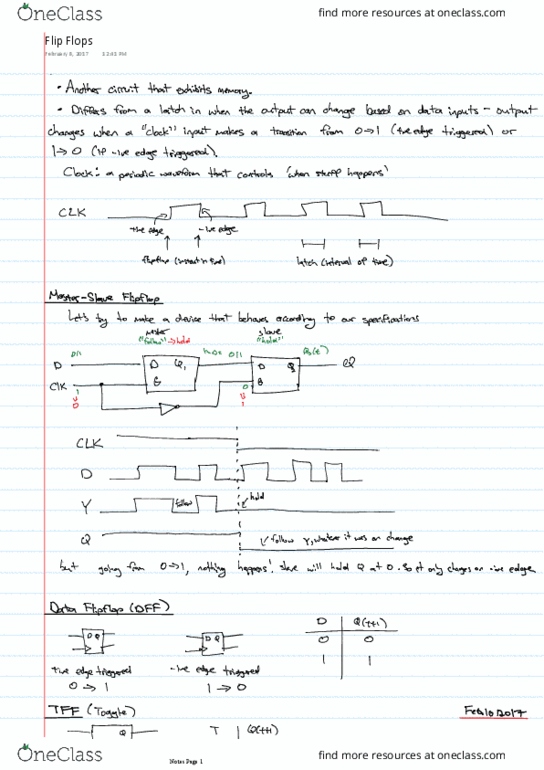 OneClass
find more resources at oneclass.com
Flip Flops
February 8, 2017 12:43 PM
• Another circuit that exhibits memory.
• Differs from a latch in when the output can change based on data inputs - output
changes when a "clock" input makes a transition from 0→1 (+ive edge triggered) or
1→0 (if -ive edge triggered).
Clock: a periodic waveform that controls 'when stuff happens'
CLK
+ive edge
-ive edge
flipflop (instant in time)
latch (interval of time)
Master-Slave Flipflop
Let's try to make a device that behaves according to our specifications
master
slave
"follow" → hold
"hold"
D
D Q
G
D Q
G
Q
CLK
1
0
0
1
CLK
D
Y
follow
hold
Q
follow Y, whatever it was on change
but going from 0→1, nothing happens! slave will hold Q at 0. So it only changes on -ive edge
Data Flipflop (DFF)
D Q
D Q
D Q(t+1)
0 0
1 1
+ive edge triggered
-ive edge triggered
0 → 1
1 → 0
TFF (Toggle)
Feb 10 2017
Q
T Q(t+1)
Notes Page 1
OneClass
find more resources at oneclass.com